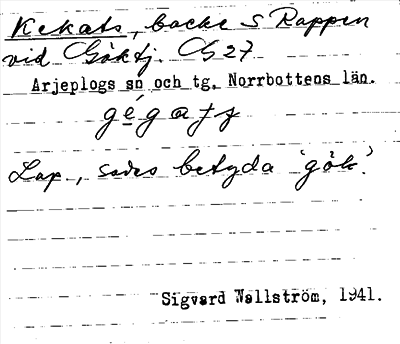 Kekats, backe S Rappen
vid Göktj. G 27
Arjeplogs sn och tg. Norrbottens län.
Lap., sades betyda 'gök'.
Sigvard Wallström, 1941.